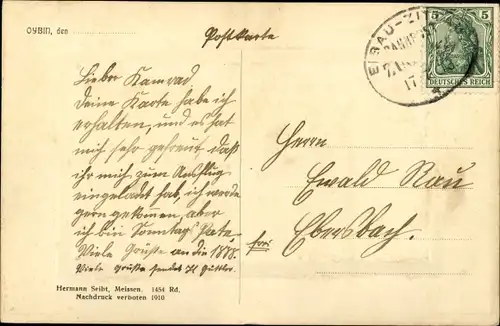 OYBIN, den
Postkarte
EIBAU-ZITTAU
BAHNPOST
ZUG
17
5 5
DEUTSCHES REICH
Liebr Kamrad
Deine Karte habe ich
erhalten, und es hat
mich sehr gefreut daß
ihr mich zum Ausflug
eingeladet hab, ich werde
gern gekommen, aber
ich bin Sonntags Pate.
Viele Grüße an die
Viele Grüße sendet
Herrn
Ewald Rau
Ebersbach.
Hermann Seibt, Meissen. 1454 Rd.
Nachdruck verboten 1910